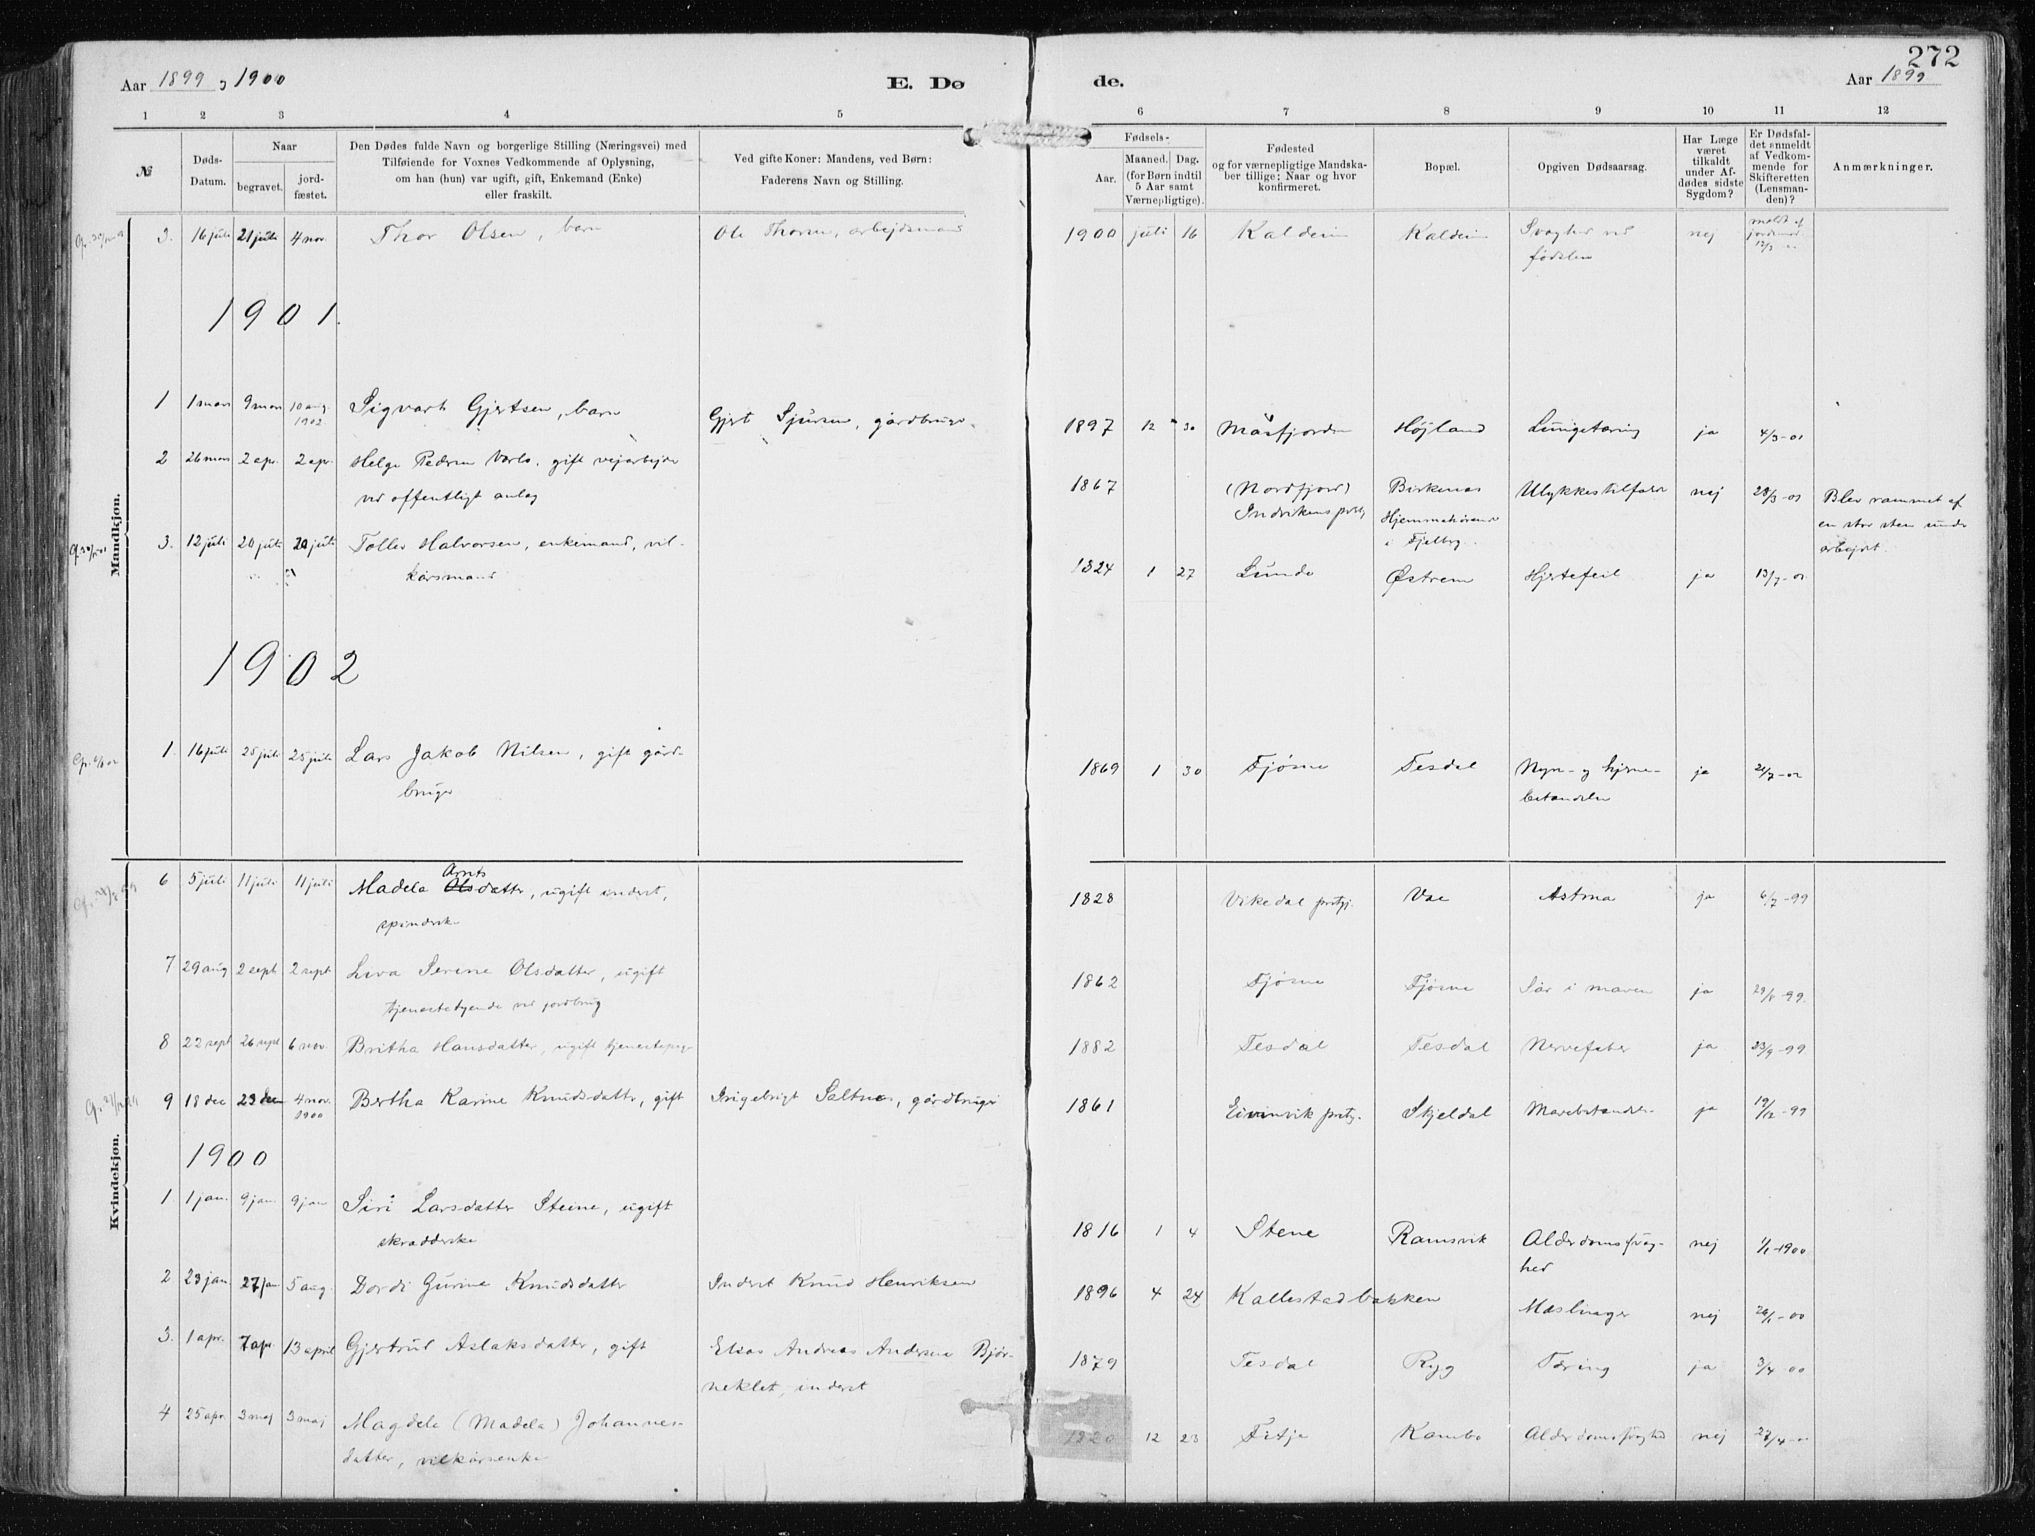 272
Aar 1899 1900 E. Dø de. Aar 1899
1 2 3 4 5 6 7 8 9 10 11 12
№
Døds-
Datum.
Naar
begravet.
jord-
fæstet.
Den Dødes fulde Navn og borgerlige Stilling (Næringsvei) med
Tilføiende for Voxnes Vedkommende af Oplysning,
om han (hun) var ugift, gift, Enkemand (Enke)
eller fraskilt.
Ved gifte Koner: Mandens, ved Børn:
Faderens Navn og Stilling.
Fødsels-
Aar.
Maaned. Dag.
(for Børn indtil
5 Aar samt
Værnepligtige).
Fødested
og for værnepligtige Mandska-
ber tillige: Naar og hvor
konfirmeret.
Bopæl.
Opgiven Dødsaarsag.
Har Læge
været
tilkaldt
under Af-
dødes sidste
Sygdom?
Er Dødsfal-
det anmeldt
af Vedkom-
mende for
Skifteretten
(Lensman-
den)?
Anmærkninger.
Mandkjøn.
3. 16 juli 21 juli 4 nov. Thor Olsen, barn Ole Thorsen, arbejdsmand 1900 juli 16 Kaldeim Kaldeim Svaghed ved nej
fødslen
1901.
1 1 mars 9 mars 10 aug. Sigvart Gjertsen, barn Gjert Sjursen, gårdbruger 1897 12 30 Måsfjorden Højland Lungetæring ja 4/3-01
1902
2 26 mars 2 apr. 2 apr. Helge Pedersen gift vejarbejder 1867 (Nordfjord) Birkenæs Ulykkestilfælde nej 28/3-01 Blev rammet af
ved offentligt anlæg Indvikens prstgj. Hjemmehørende en stor sten under
i Fjelberg. arbejdet.
3. 12 juli 20 juli 20 juli Tollev Halvorsen, enkemand, vil- 1824 1 27 Lunde Østrem Hjertefeil ja 13/7-01
kårsmand
1902
1. 16 juli 25 juli 25 juli Lars Jakob Nilsen, gift gård- 1869 1 30 Fjøsne Tesdal Nyre- og hjerne- ja 21/7-02
bruger betændelse
Kvindekjøn.
6 5 juli 11 juli 11 juli Madela Arnts Olsdatter, ugift inderst, 1828 Vikedal prstgj. Vae Astma ja 6/7-99
spinderske
7 29 aug 2 sept 2 sept Serine Olsdatter, ugift 1862 Fjøsne Fjøsne Sår i maven ja 29/8-99.
tjenestetyende ved jordbrug
8 22 sept 26 sept 6 nov. Britha Hansdatter, ugift tjenestepige 1882 Tesdal Tesdal Nervefeber ja 23/9-99.
9 18 dec 23 dec 4 nov. Bertha Karine Knudsdatter, gift Ingebrigt Saltnes, gårdbruger 1861 Eivinvik prstgj. Skjeldal Mavebetændelse ja 19/12-99
1900
1900
1. 1 jan. 9 jan. 9 jan Siri Larsdatter Steine, ugift 1816 1 4 Stene Ramsvik Alderdomssvag- nej 1/1-1900
skrædderske hed
2 23 jan. 27 jan 5 aug. Dordi Gurine Knudsdatter Inderst Knud Henriksen 1896 4 24 Kallestadbakken Mæslinger nej 24/1-00
3. 1 apr. 7 apr. 13 april Gjertrud Aslaksdatter, gift Elias Andreas Andersen Bjør- 1879 Tesdal Ryg Tæring ja 3/4 00
neklet, inderst
4 25 apr. 3 maj 3 maj Magdela (Madela) Johannes- 1820 12 23 Fitja Kambe Alderdomssvaghed nej
datter, vilkårsenke